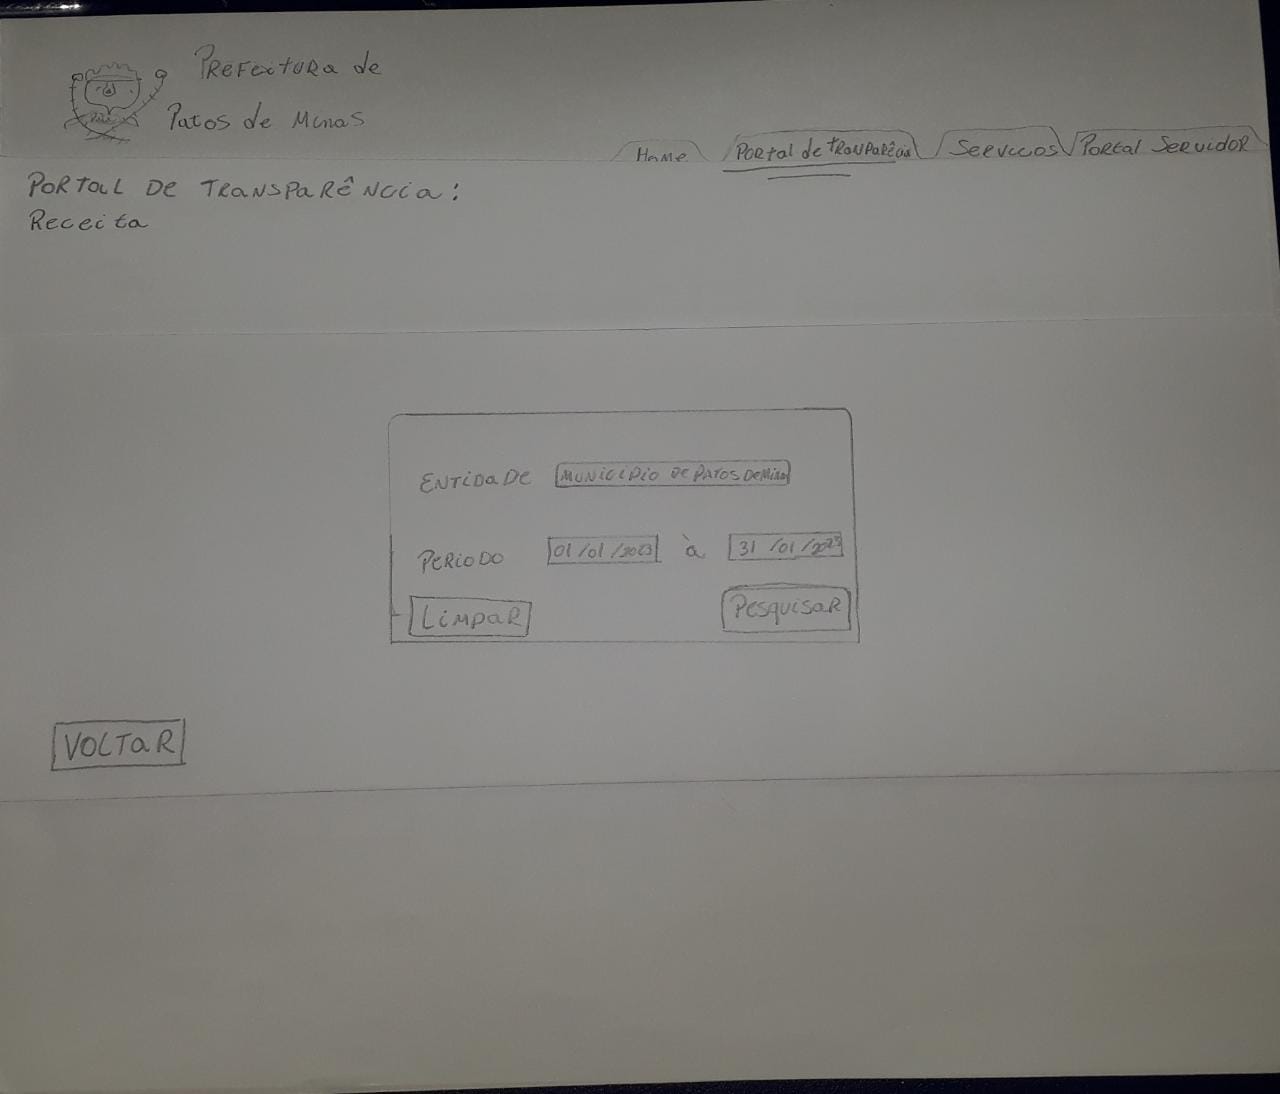 Prefeitura de
Patos de Minas
Home Portal de Tranparência Servicos Portal Servidor
Portal de Transparência:
Receita
Entidade Município de Patos de Minas
Periodo 01/01/2023 à 31/01/2023
Limpar Pesquisar
Voltar